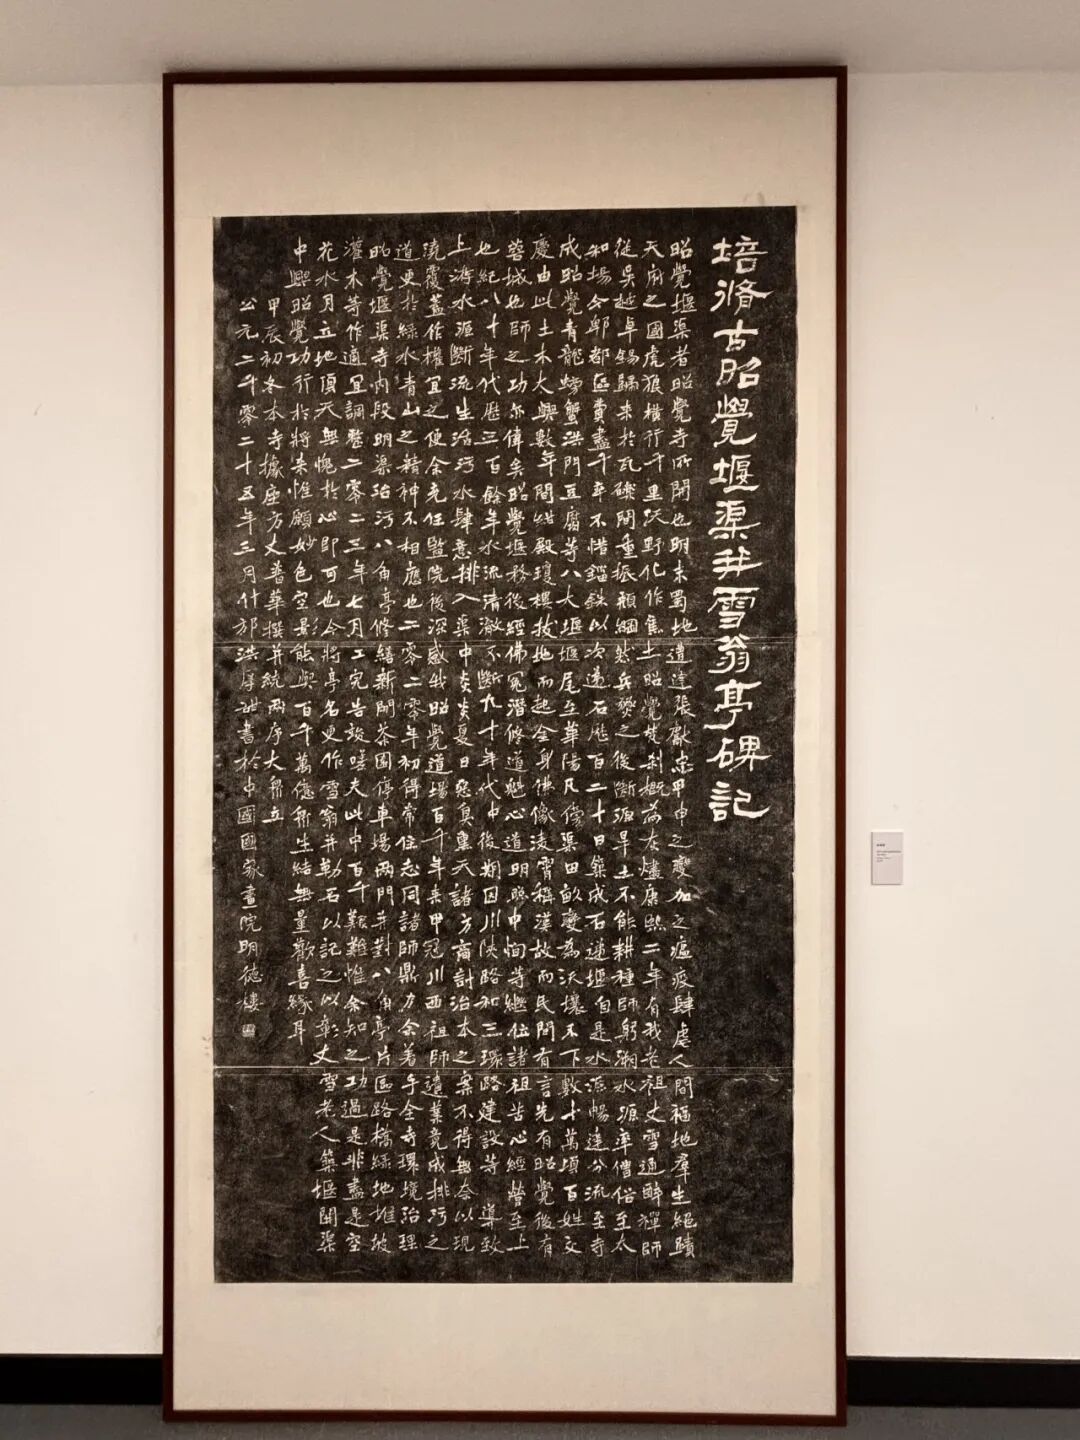 培脩古昭覺堰渠并雪翁亭碑記
昭覺堰渠者昭覺寺所開也明末蜀地遭逢張獻忠甲申之變加之瘟疫肆虐人間福地羣生絕蹟
天府之國虎狼橫行千里沃野化作焦土昭覺梵剎概為灰燼康熙二年有我老祖丈雪通醉禪師
從吳越卓錫歸來於瓦礫間重振頹綱然兵燹之後斷源旱土不能耕種師躬溯水源率僧俗至太
和場今郫都區費盡千辛不惜錙銖以次遞石應百二十日築成石遞堰自是水源暢達分流至寺
成昭覺青龍螃蟹洪門豆腐等八大堰堰尾至華陽凡傍渠田畝變為沃壤不下數十萬頃百姓交
慶由此土木大興數年間紺殿瓊樓拔地而起金身佛像淩霄稱漢故而民間有言先有昭覺後有
蓉城也師之功亦偉矣昭覺堰務後經佛冤潛修道魁心道明眙中恂等繼位諸祖苦心經營至上
世紀八十年代歷三百餘年水流清澈不斷九十年代中後期因川陝路和三環路建設等 導致
上游水源斷流生活污水肆意排入渠中炎炎夏日惡臭熏天諸方商討治本之案不得無奈以現
澆覆蓋作權宜之便余充任監院後深感我昭覺道場百千年來甲冠川西祖師遺業竟成排污之
道更於綠水青山之精神不相應也二零二零年初得常住志同諸師鼎力余著手全寺環境治理
昭覺堰渠寺內段明渠治污八角亭修繕新開茶園停車場兩門并對八角亭片區路橋綠地堆坡
灌木等作適宜調整二零二三年七月工完告竣嘻夫此中百千艱難惟余知之功過是非盡是空
花水月立地頂天無愧於心即可也今將亭名更作雪翁并勒石以記之以彰丈雪老人築堰開渠
中興昭覺功行於將來惟願妙色空景能與百千萬億衆生結無量歡喜緣耳
甲辰初冬本寺據座方丈普華撰并統兩序大衆立
公元二千零二十五年三月什邡洪厚甜書於中國國家畫院明德樓